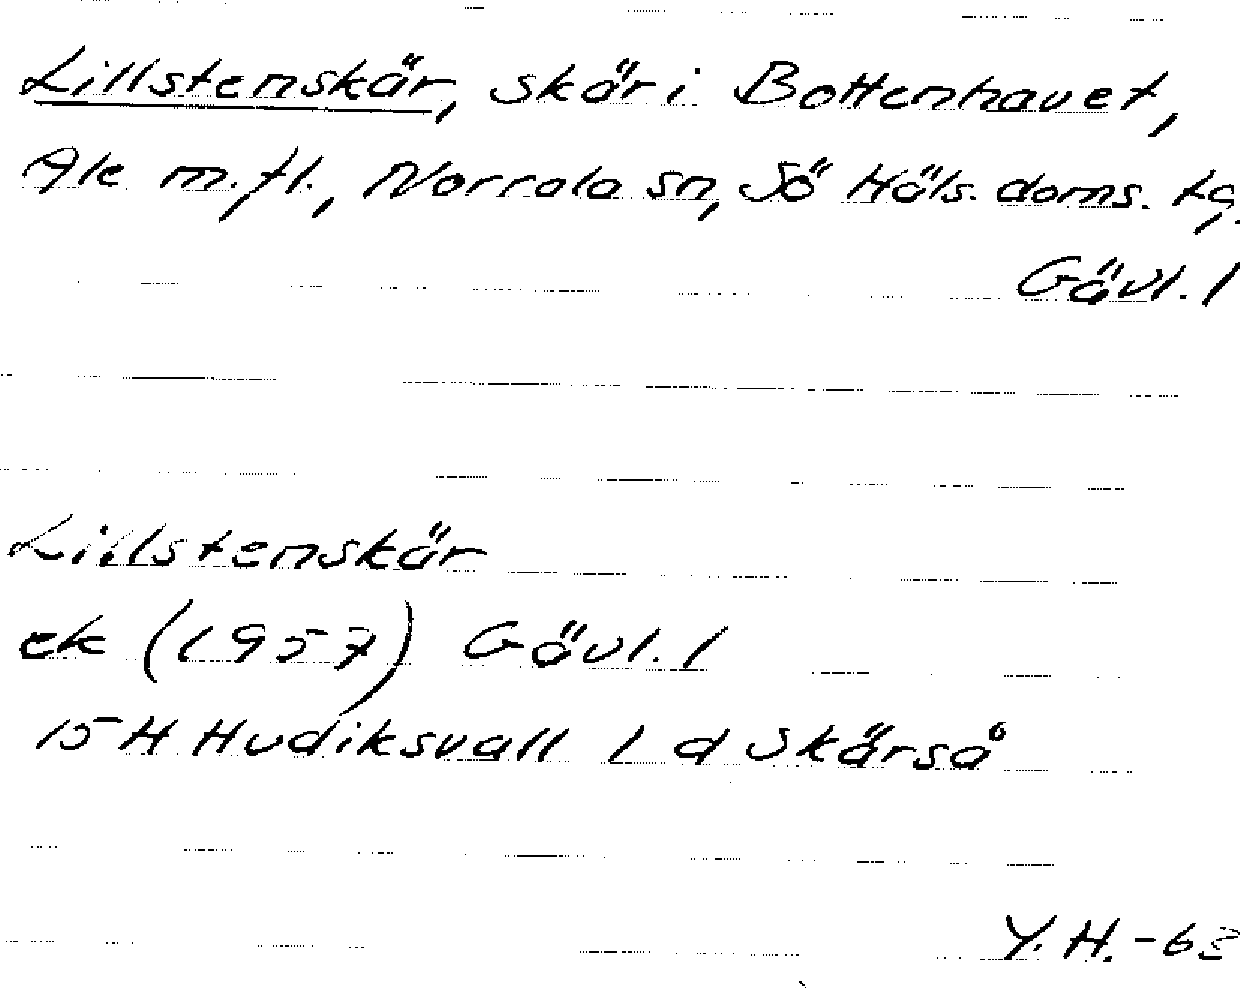 Lillstenskär, skär i Bottenhavet,
Ale m.fl., Norrala sn, Sö Häls. doms. tg,
Gävl. l
Lillstenskär
ek (1957) Gävl. l
15 H Hudiksvall 1 d Skärså
Y. H. -63